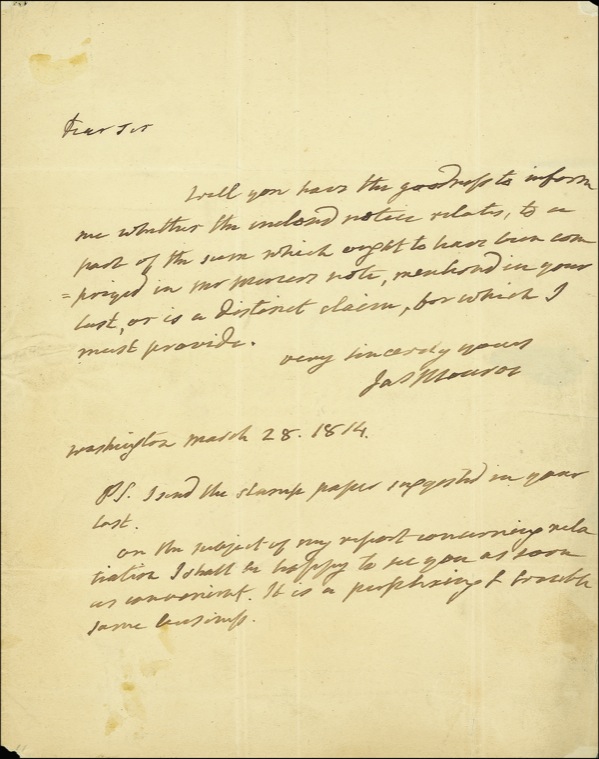 Dear Sir
Will you have the goodness to inform
me whether the inclosd notice relates, to a
part of the sum which ought to have been com
=prized in mr note, mentiond in your
last, or is a distinct claim, for which I
must provide.
very sincerely yours
Jas Monroe
Washington March 28. 1814.
PS. I send the stamp paper suggested in your
last.
on the subject of my report concerning reta
liation I shall be happy to see you as soon
as convenient. It is a perplexing & trouble
some business.